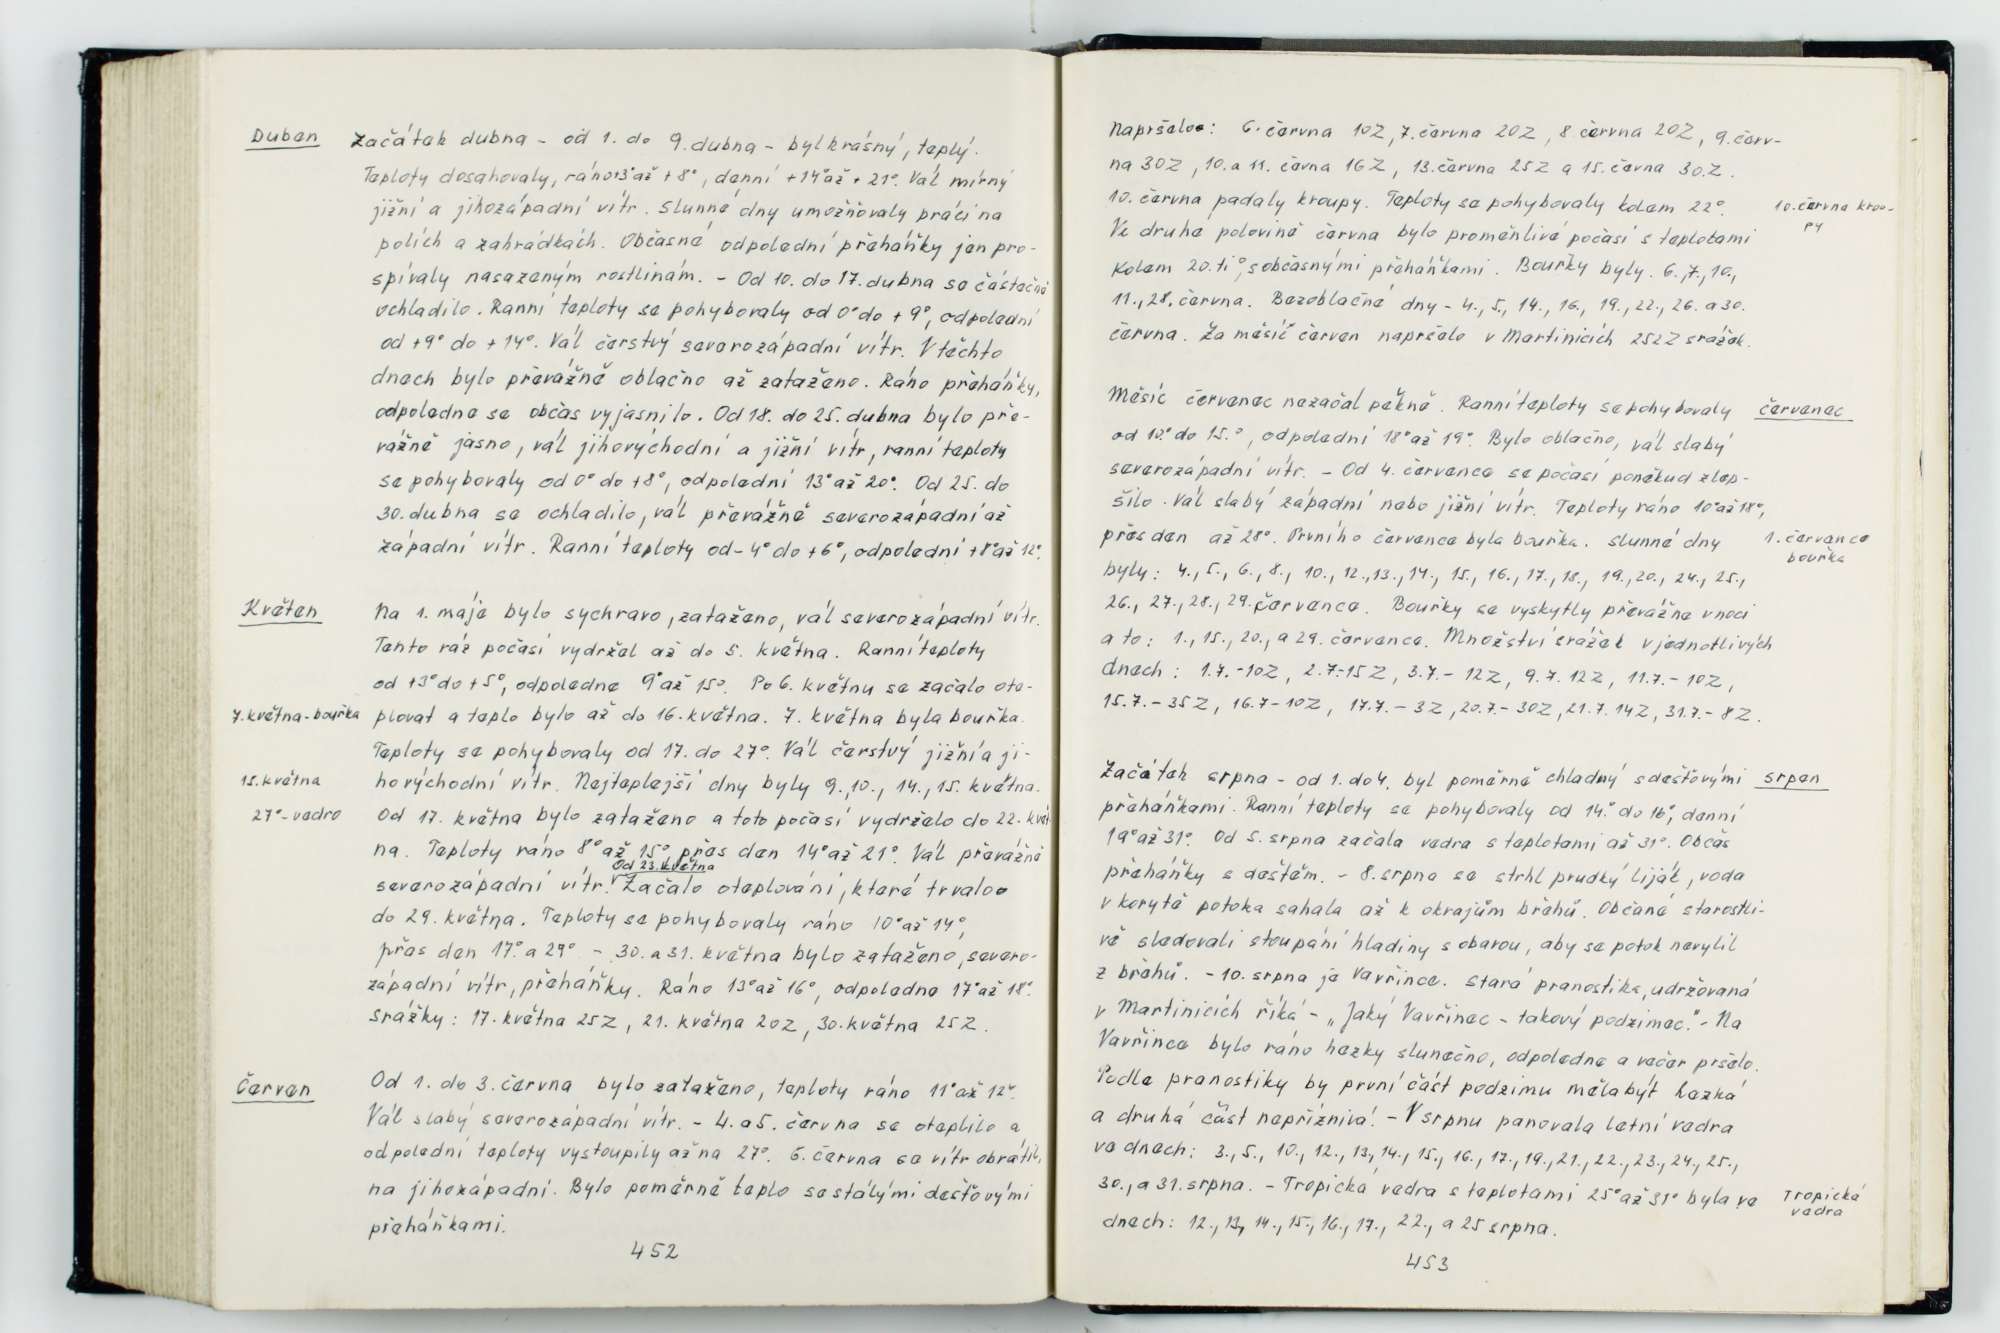 Duben
Začátek dubna - od 1. do 9. dubna - byl krásný, teplý.
Teploty dosahovaly, ráno +3° až +8°, denní +14° až +21°. Vál mírný
jižní a jihozápadní vítr. Slunné dny umožňovaly práci na
polích a zahrádkách. Občasné odpolední přeháňky jen pro-
spívaly nasazeným rostlinám. - Od 10. do 17. dubna se částečně
ochladilo. Ranní teploty se pohybovaly od 0° do +9°, odpolední
od +9° do +14°. Vál čerstvý severozápadní vítr. V těchto
dnech bylo převážně oblačno až zataženo. Ráno přeháňky,
odpoledne se občas vyjasnilo. Od 18. do 25. dubna bylo pře-
vážně jasno, vál jihovýchodní a jižní vítr, ranní teploty
se pohybovaly od 0° do +8°, odpolední 13° až 20°. Od 25. do
30. dubna se ochladilo, vál převážně severozápadní až
západní vítr. Ranní teploty od -4° do +6°, odpolední +8° až 12°.
Květen
Na 1. máje bylo sychravo, zataženo, vál severozápadní vítr.
Tento ráz počasí vydržel až do 5. května. Ranní teploty
od +3° do +5°, odpoledne 9° až 15°. Po 6. květnu se začalo ote-
7. května - bouřka
plovat a teplo bylo až do 16. května. 7. května byla bouřka.
Teploty se pohybovaly od 17. do 27°. Vál čerstvý jižní a ji-
15. května
hovýchodní vítr. Nejteplejší dny byly 9., 10., 14., 15. května.
27° - vedro
Od 17. května bylo zataženo a toto počasí vydrželo do 22. květ-
na. Teploty ráno 8° až 15° přes den 14° až 21°. Vál převážně
Od 23. května
severozápadní vítr. Začalo oteplování, které trvalo
do 29. května. Teploty se pohybovaly ráno 10° až 14°,
přes den 17° a 29° - 30. a 31. května bylo zataženo, severo-
západní vítr, přeháňky. Ráno 13° až 16°, odpoledne 17° až 18°.
Srážky: 17. května 25Z, 21. května 20Z, 30. května 25Z.
Červen
Od 1. do 3. června bylo zataženo, teploty ráno 11° až 12°.
Vál slabý severozápadní vítr. - 4. a 5. června se oteplilo a
odpolední teploty vystoupily až na 27°. 6. června se vítr obrátil,
na jihozápadní. Bylo poměrně teplo se stálými dešťovými
přeháňkami.
452
Napršelo: 6. června 10Z, 7. června 20Z, 8. června 20Z, 9. červ-
na 30Z, 10. a 11. čevna 16Z, 13. června 25Z a 15. čevna 30.Z.
10. června padaly kroupy. Teploty se pohybovaly kolem 22°.
10. června krou-
py
Ve druhé polovině června bylo proměnlivé počasí s teplotami
kolem 20.ti°, s občasnými přeháňkami. Bouřky byly. 6., 7., 10.,
11., 28. června. Bezoblačné dny - 4., 5., 14., 16., 19., 22., 26. a 30.
června. Za měsíc červen napršelo v Martinicích 252Z srážek.
Měsíc červenec nezačal pěkně. Ranní teploty se pohybovaly
červenec
od 10.° do 15.°, odpolední 18° až 19°. Bylo oblačno, vál slabý
severozápadní vítr. - Od 4. července se počasí poněkud zlep-
šilo. Vál slabý západní nebo jižní vítr. Teploty ráno 10° až 18°,
přes den až 28°. Prvního července byla bouřka. Slunné dny
1. července
bouřka
byly: 4., 5., 6., 8., 10., 12., 13., 14., 15., 16., 17., 18., 19., 20., 24., 25.,
26., 27., 28., 29. července. Bouřky se vyskytly převážne v noci
a to: 1., 15., 20., a 29. července. Množství srážek v jednotlivých
dnech: 1.7.-10Z, 2.7.-15Z, 3.7.- 12Z, 9.7. 12Z, 11.7.- 10Z,
15.7.- 35Z, 16.7-10Z, 17.7.- 3Z, 20.7.- 30Z, 21.7. 14Z, 31.7.- 8Z.
Začátek srpna - od 1. do 4. byl poměrně chladný s dešťovými
srpen
přeháňkami. Ranní teploty se pohybovaly od 14.° do 16°, denní
19° až 31°. Od 5. srpna začala vedra s teplotami až 31°. Občas
přeháňky s deštěm. - 8. srpna se strhl prudký liják, voda
v korytě potoka sahala až k okrajům břehů. Občané starostli-
vě sledovali stoupání hladiny s obavou, aby se potok nevylil
z břehů. - 10. srpna je Vavřince. Stará pranostika, udržovaná
v Martinicích říká - "Jaký Vavřinec - takový podzimec." - Na
Vavřince bylo ráno hezky slunečno, odpoledne a večer pršelo.
Podle pranostiky by první část podzimu měla být hezká
a druhá část nepříznivá. - V srpnu panovala letní vedra
ve dnech: 3., 5., 10., 12., 13, 14., 15., 16., 17., 19., 21., 22., 23., 24., 25.,
30., a 31. srpna. - Tropická vedra s teplotami 25° až 31° byla ve
Tropická
vedra
dnech: 12., 13, 14., 15., 16., 17., 22., a 25 srpna.
453